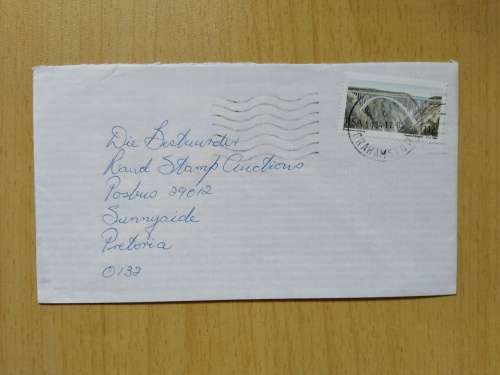 Die Bestuurder
Rand Stamp Auctions
Posbus 29012
Sunnyside
Pretoria
0132
GRAHAMSTO